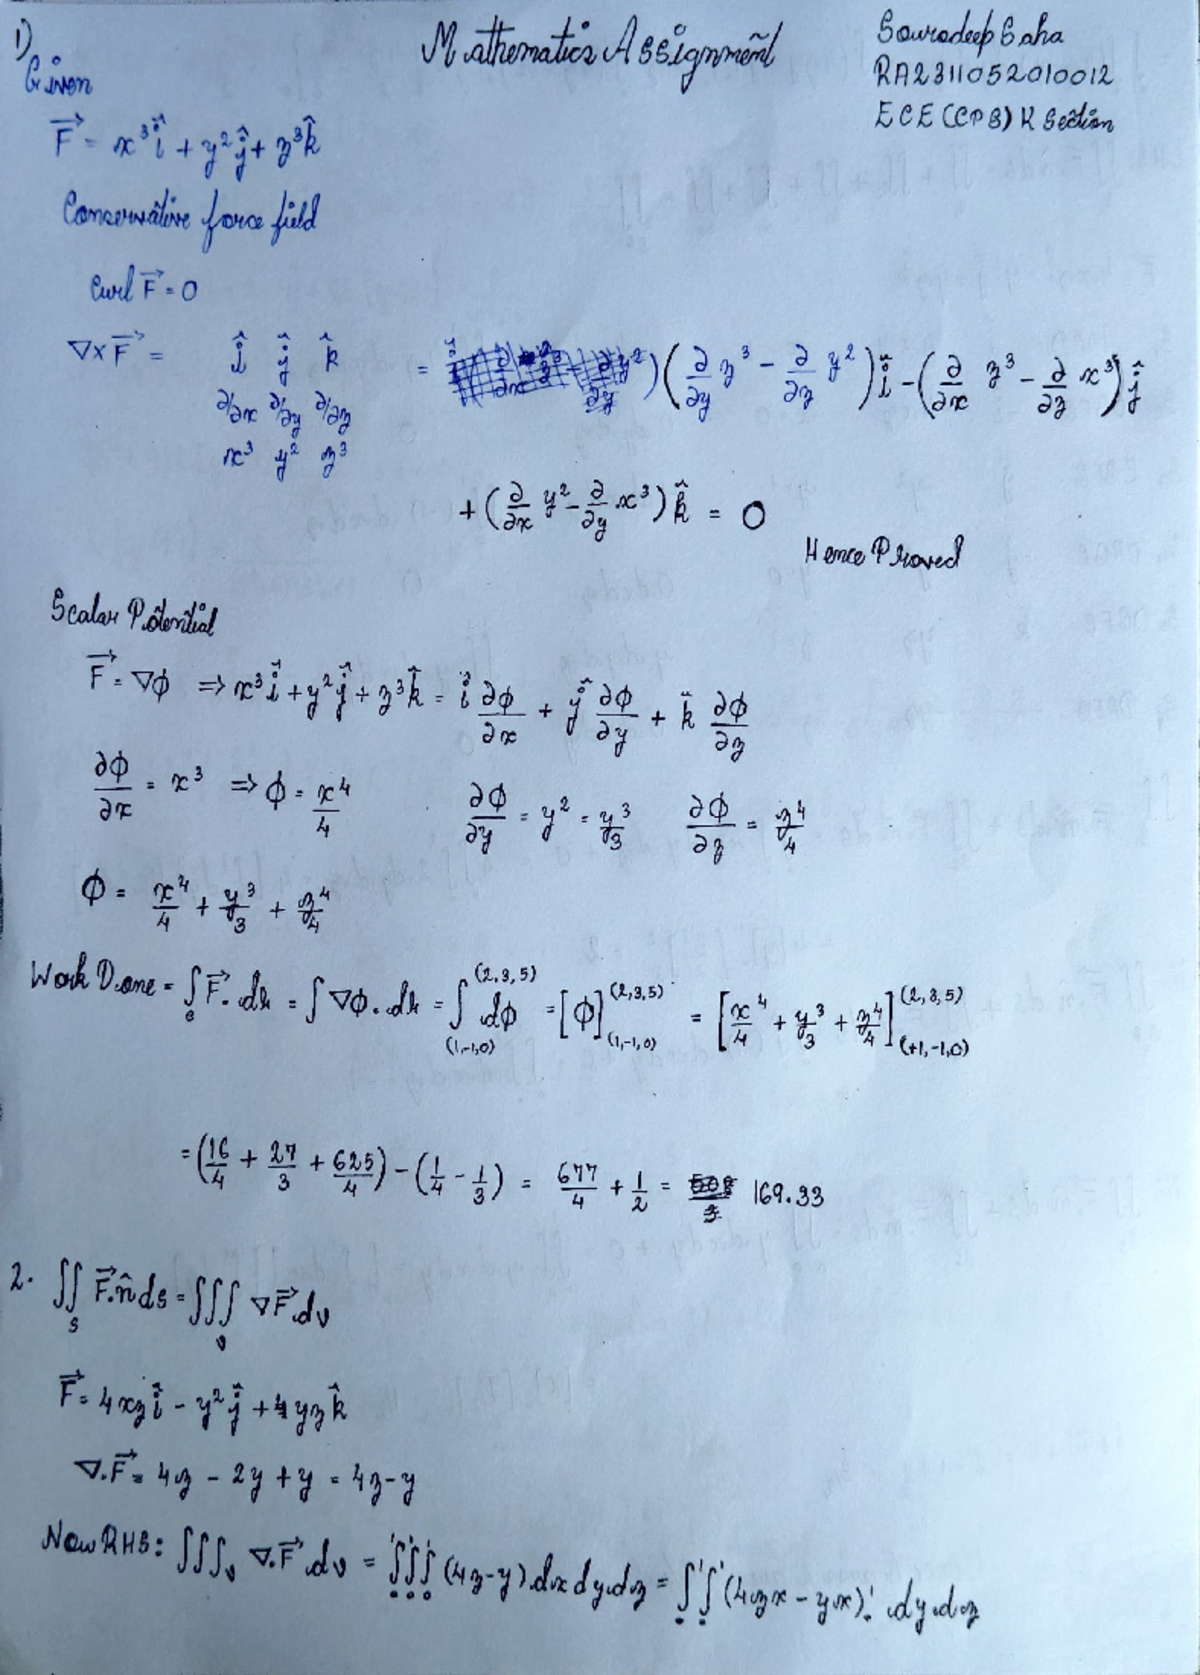 Mathematics Assignment
Souradeep Saha
RA2311052010012
ECE (CPS) K Section
1)
Given
F⃗ = x³î + y²ĵ + z³k̂
Conservative force field
Curl F⃗ = 0
∇×F⃗ = î ĵ k̂
∂/∂x ∂/∂y ∂/∂z
x³ y² z³
= (∂/∂y z³ − ∂/∂z y²)î − (∂/∂x z³ − ∂/∂z x³)ĵ
+ (∂/∂x y² − ∂/∂y x³)k̂ = 0
Hence Proved
Scalar Potential
F⃗ = ∇ϕ ⇒ x³î + y²ĵ + z³k̂ = î ∂ϕ/∂x + ĵ ∂ϕ/∂y + k̂ ∂ϕ/∂z
∂ϕ/∂x = x³ ⇒ ϕ = x⁴/4 ∂ϕ/∂y = y² = y³/3 ∂ϕ/∂z = z⁴/4
ϕ = x⁴/4 + y³/3 + z⁴/4
Work Done = ∫c F⃗.dr = ∫∇ϕ.dr = ∫(1,-1,0)^(2,3,5) dϕ = [ϕ](1,-1,0)^(2,3,5) = [x⁴/4 + y³/3 + z⁴/4](+1,-1,0)^(2,3,5)
= (16/4 + 27/3 + 625/4) − (1/4 − 1/3) = 677/4 + 1/2 = 169.33
2. ∬s F⃗.n̂ ds = ∭v ∇F⃗.dv
F⃗ = 4xzî − y²ĵ + yzk̂
∇.F⃗ = 4z − 2y + y = 4z−y
Now RHS: ∭v ∇.F⃗.dv = ∫₀¹∫₀¹∫₀¹ (4z−y).dx dy.dz = ∫₀¹∫₀¹ (4zx − yx)₀¹ .dy.dz